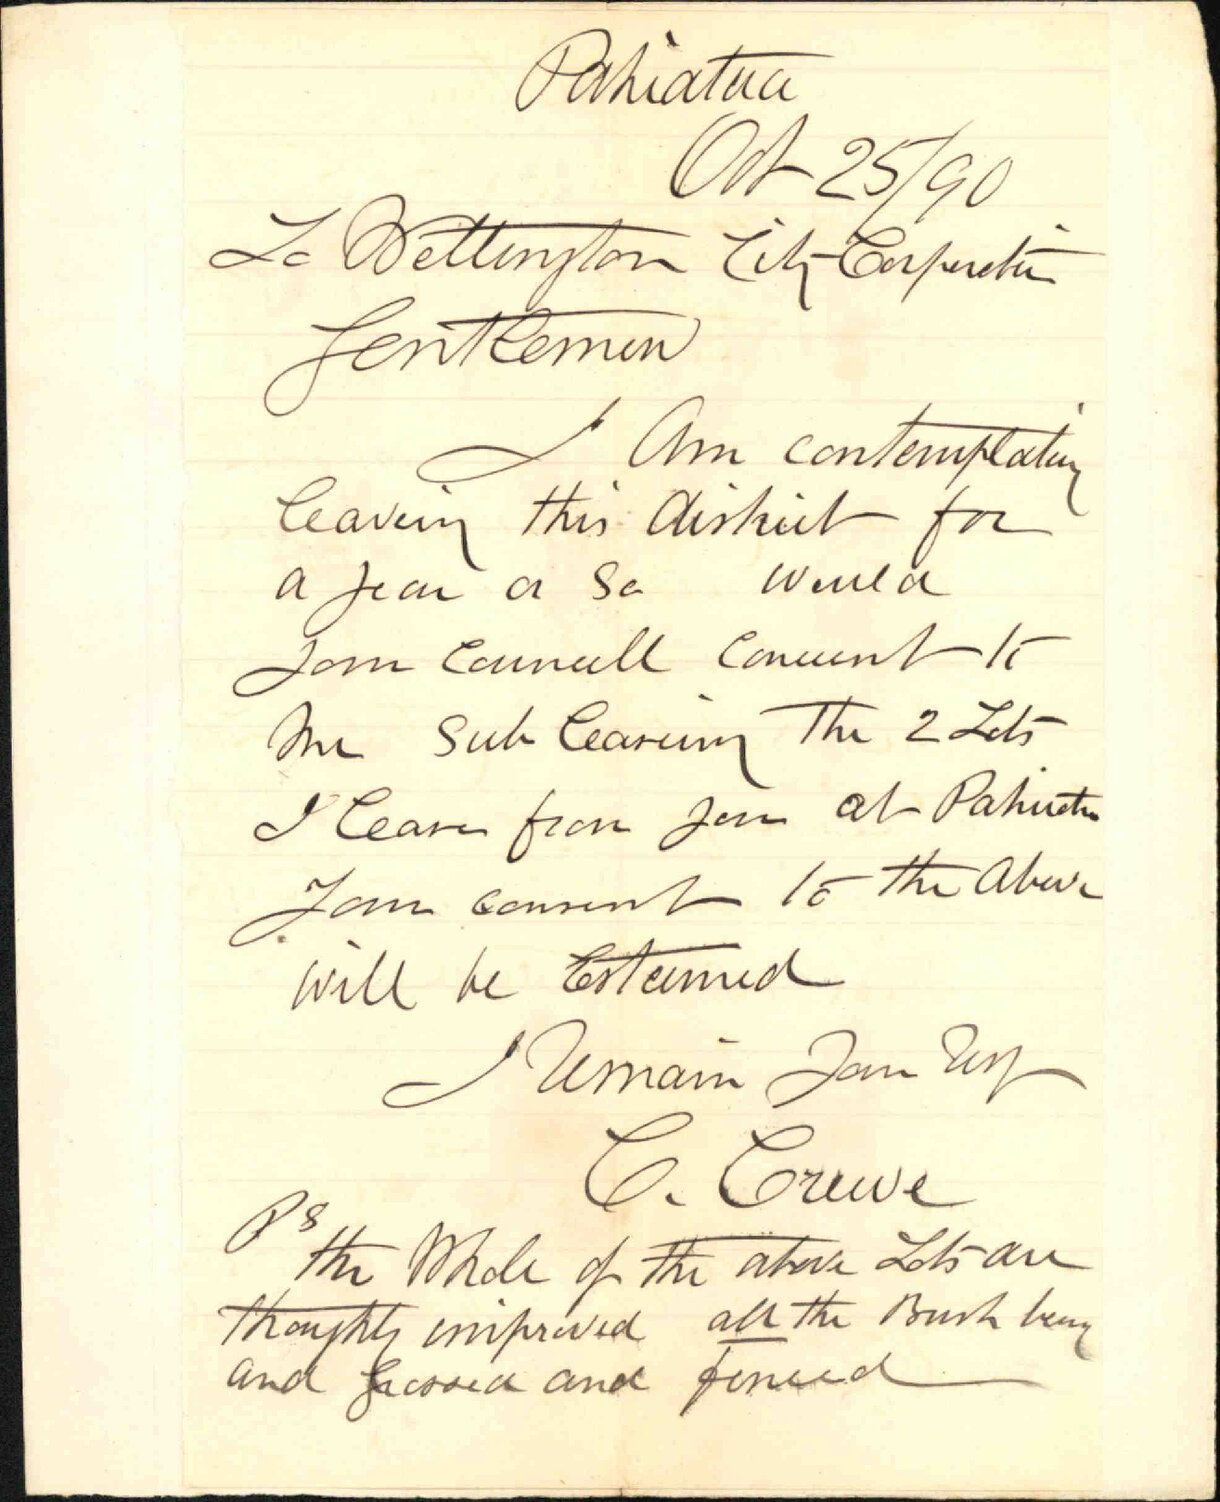 Pahiatua
Oct 25/90
To Wellington City Corporation
Gentlemen
I Am contemplating
leaving this district for
a year or so would
your Councill Concent to
me Sub leasing The 2 Lots
I lease from you at Pahiatua
Your consent to the Above
will be Esteemed
I Remain Your Resp
C. Crewe
Ps
the Whole of the above Lots are
improved all the Bush being
and Grassed and fenced